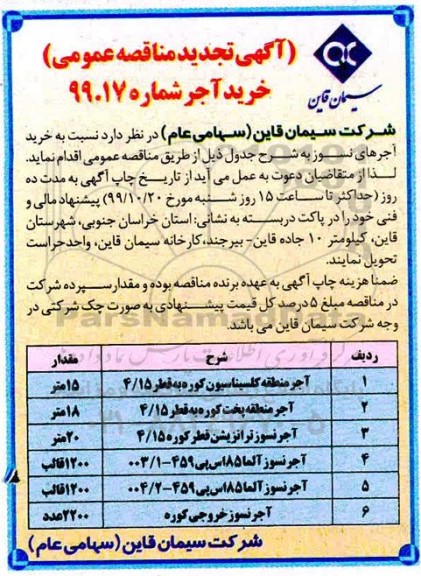 (آگهی تجدید مناقصه عمومی)
خرید آجر شماره ۹۹.۱۷
سیمان قاین
شرکت سیمان قاین (سهامی عام) در نظر دارد نسبت به خرید
آجرهای نسوز به شرح جدول ذیل از طریق مناقصه عمومی اقدام نماید.
لذا از متقاضیان دعوت به عمل می آید از تاریخ چاپ آگهی به مدت ده
روز (حداکثر تا ساعت ۱۵ روز شنبه مورخ ۹۹/۱۰/۲۰) پیشنهاد مالی و
فنی خود را در پاکت دربسته به نشانی: استان خراسان جنوبی، شهرستان
قاین، کیلومتر ۱۰ جاده قاین- بیرجند، کارخانه سیمان قاین، واحد حراست
تحویل نمایند.
ضمنا هزینه چاپ آگهی به عهده برنده مناقصه بوده و مقدار سپرده شرکت
در مناقصه مبلغ ۵ درصد کل قیمت پیشنهادی به صورت چک شرکتی در
وجه شرکت سیمان قاین می باشد.
ردیف شرح مقدار
۱ آجر منطقه کلسیناسیون کوره به قطر ۴/۱۵ ۱۵متر
۲ آجر منطقه پخت کوره به قطر ۴/۱۵ ۱۸متر
۳ آجر نسوز ترانزیشن قطر کوره ۴/۱۵ ۲۰متر
۴ آجر نسوز آلما۸۵اس پی ۴۵۹-۰۰۳/۱ ۱۲۰۰قالب
۵ آجر نسوز آلما۸۵اس پی ۴۵۹-۰۰۴/۲ ۱۲۰۰قالب
۶ آجر نسوز خروجی کوره ۲۲۰۰عدد
شرکت سیمان قاین (سهامی عام)
ParsNamadData